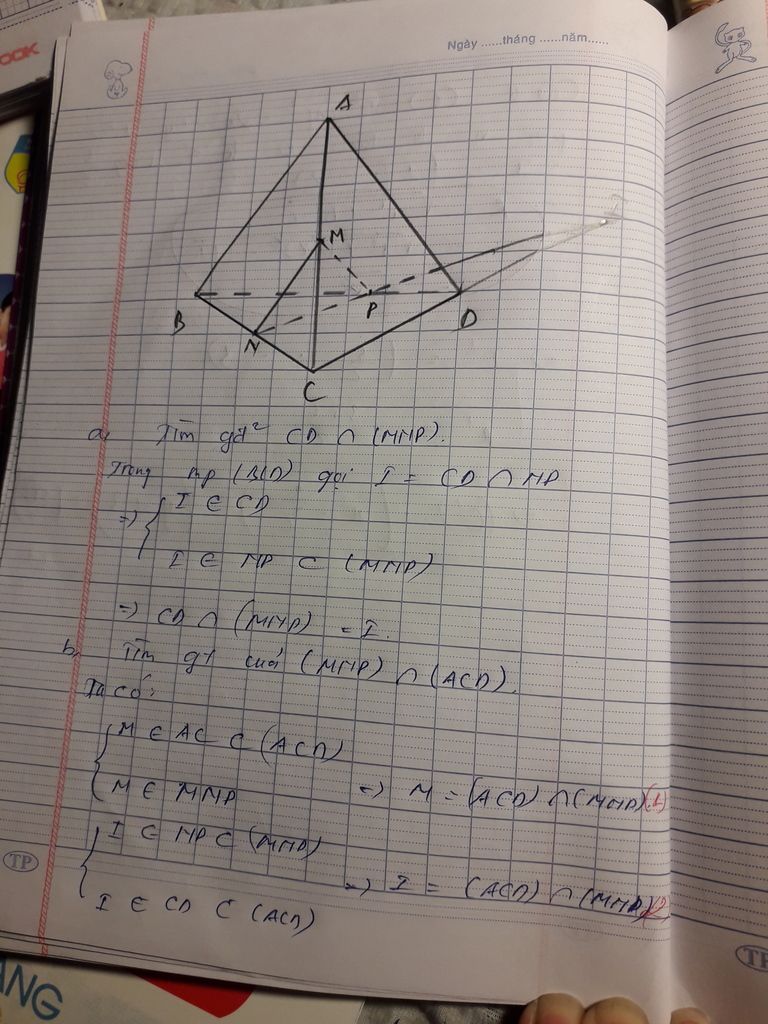 OOK
Ngày ......tháng ......năm......
A
M
I
B
P
D
N
C
a, Tìm gđ² CD ∩ (MNP).
Trong mp (BCD) gọi I = CD ∩ NP
=) { I ∈ CD
I ∈ NP ⊂ (MNP)
=) CD ∩ (MNP) = I.
b, Tìm gt của (MNP) ∩ (ACD).
Ta có:
{ M ∈ AC ⊂ (ACD)
M ∈ MNP =) M = (ACD) ∩ (MNP) (1)
{ I ⊂ NP ⊂ (MNP)
I ∈ CD ⊂ (ACD) =) I = (ACD) ∩ (MNP) (2)
TP
TP
ANG